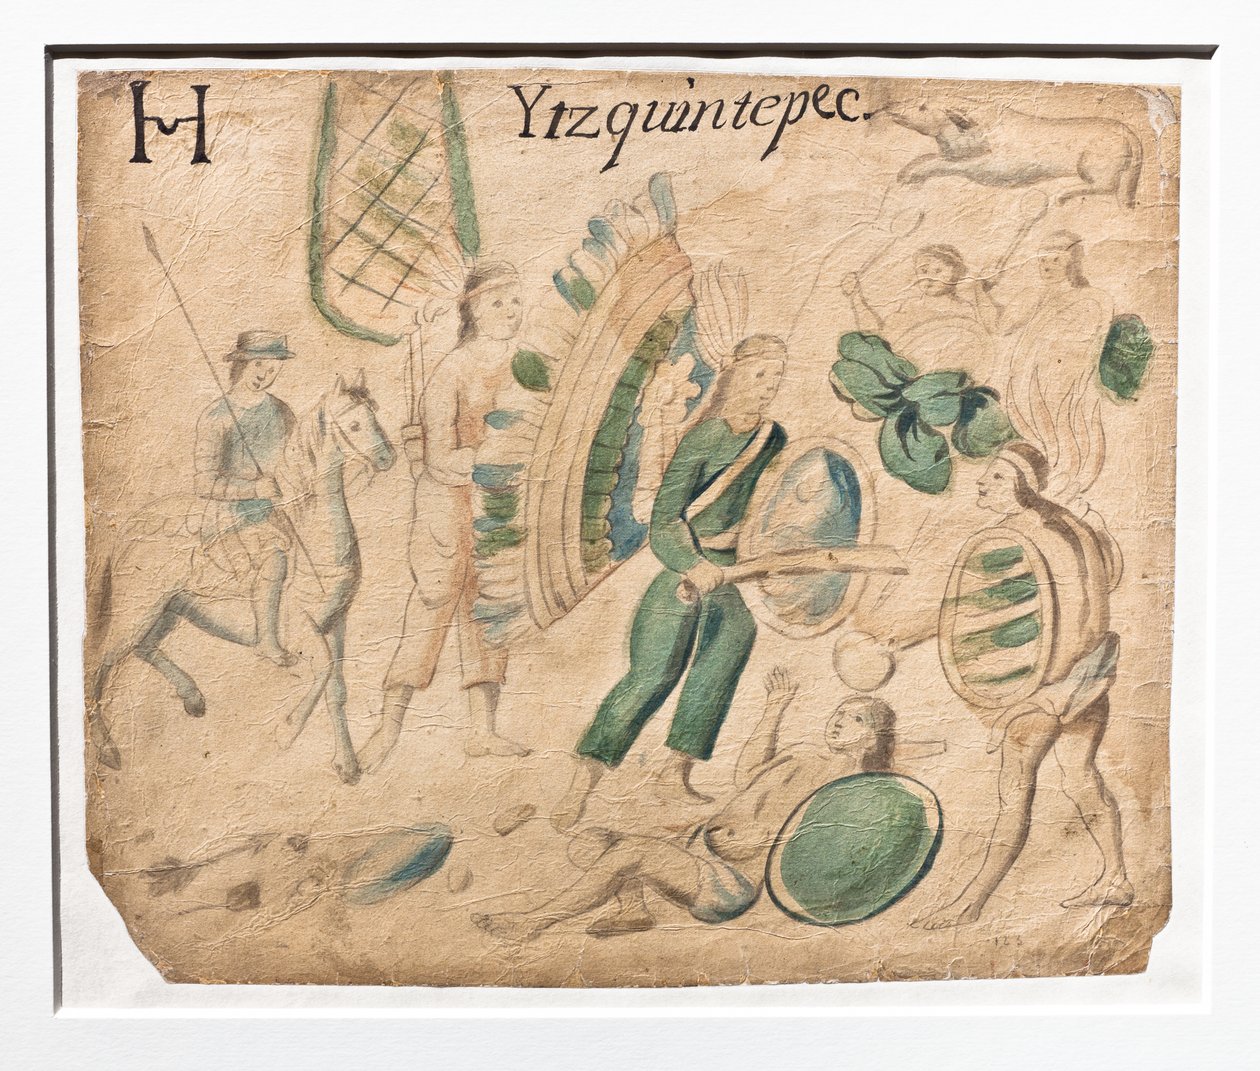 H
Ytzquintepec.
123